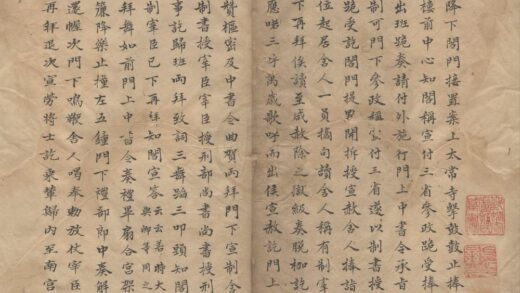 降下閤門接置案上太常寺擊鼓鼓止捧
樓前中心知閤稱宣付三省叅政跪受捧
出班跪奏請付外施行門上中書令承旨
制可門下叅政付三省遂以制書授
跪受訖閤門提點開拆授宣赦舍人捧詣
位起居舍人一員摘句讀舍人稱有制宰
下再拜俟讀至咸赦除之獄級奏脫枷訖
應喏三呼萬歲歌呼而出俟宣赦訖門上
贊樞密及中書令曲賀兩拜門下宣制舍
制書授宰臣宰臣授刑部尚書尚書授刑
事訖歸班兩拜致詞三舞蹈三叩頭知閤
制宰臣已下再拜知閤宣荅云云若時大與卿等同之
拜舞如前門上中書令奏禮畢扇合宮架
簾降樂止撞左五鐘門下禮部郎中奏解
還幄次門下鳴鞭舍人喝奉勅放仗宰臣
再拜退次宣勞將士訖乘輦歸內至南宮